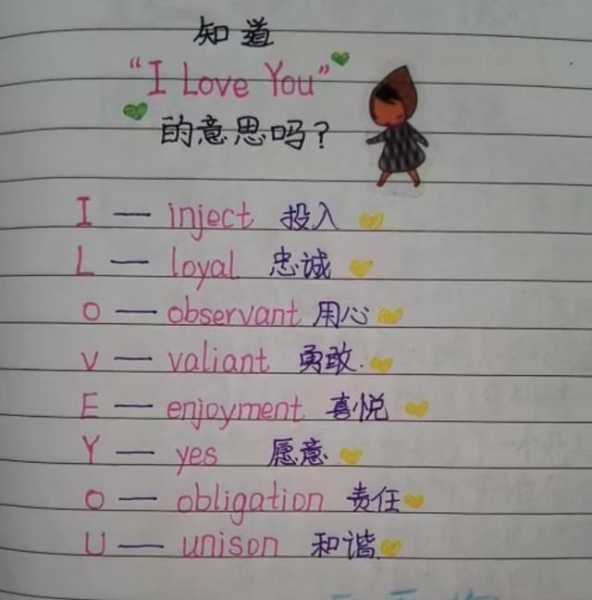 知道
“I Love You”
的意思吗?
I — inject 投入
L — loyal 忠诚
O — observant 用心
V — valiant 勇敢.
E — enjoyment 喜悦
Y — yes 愿意.
O — obligation 责任
U — unison 和谐